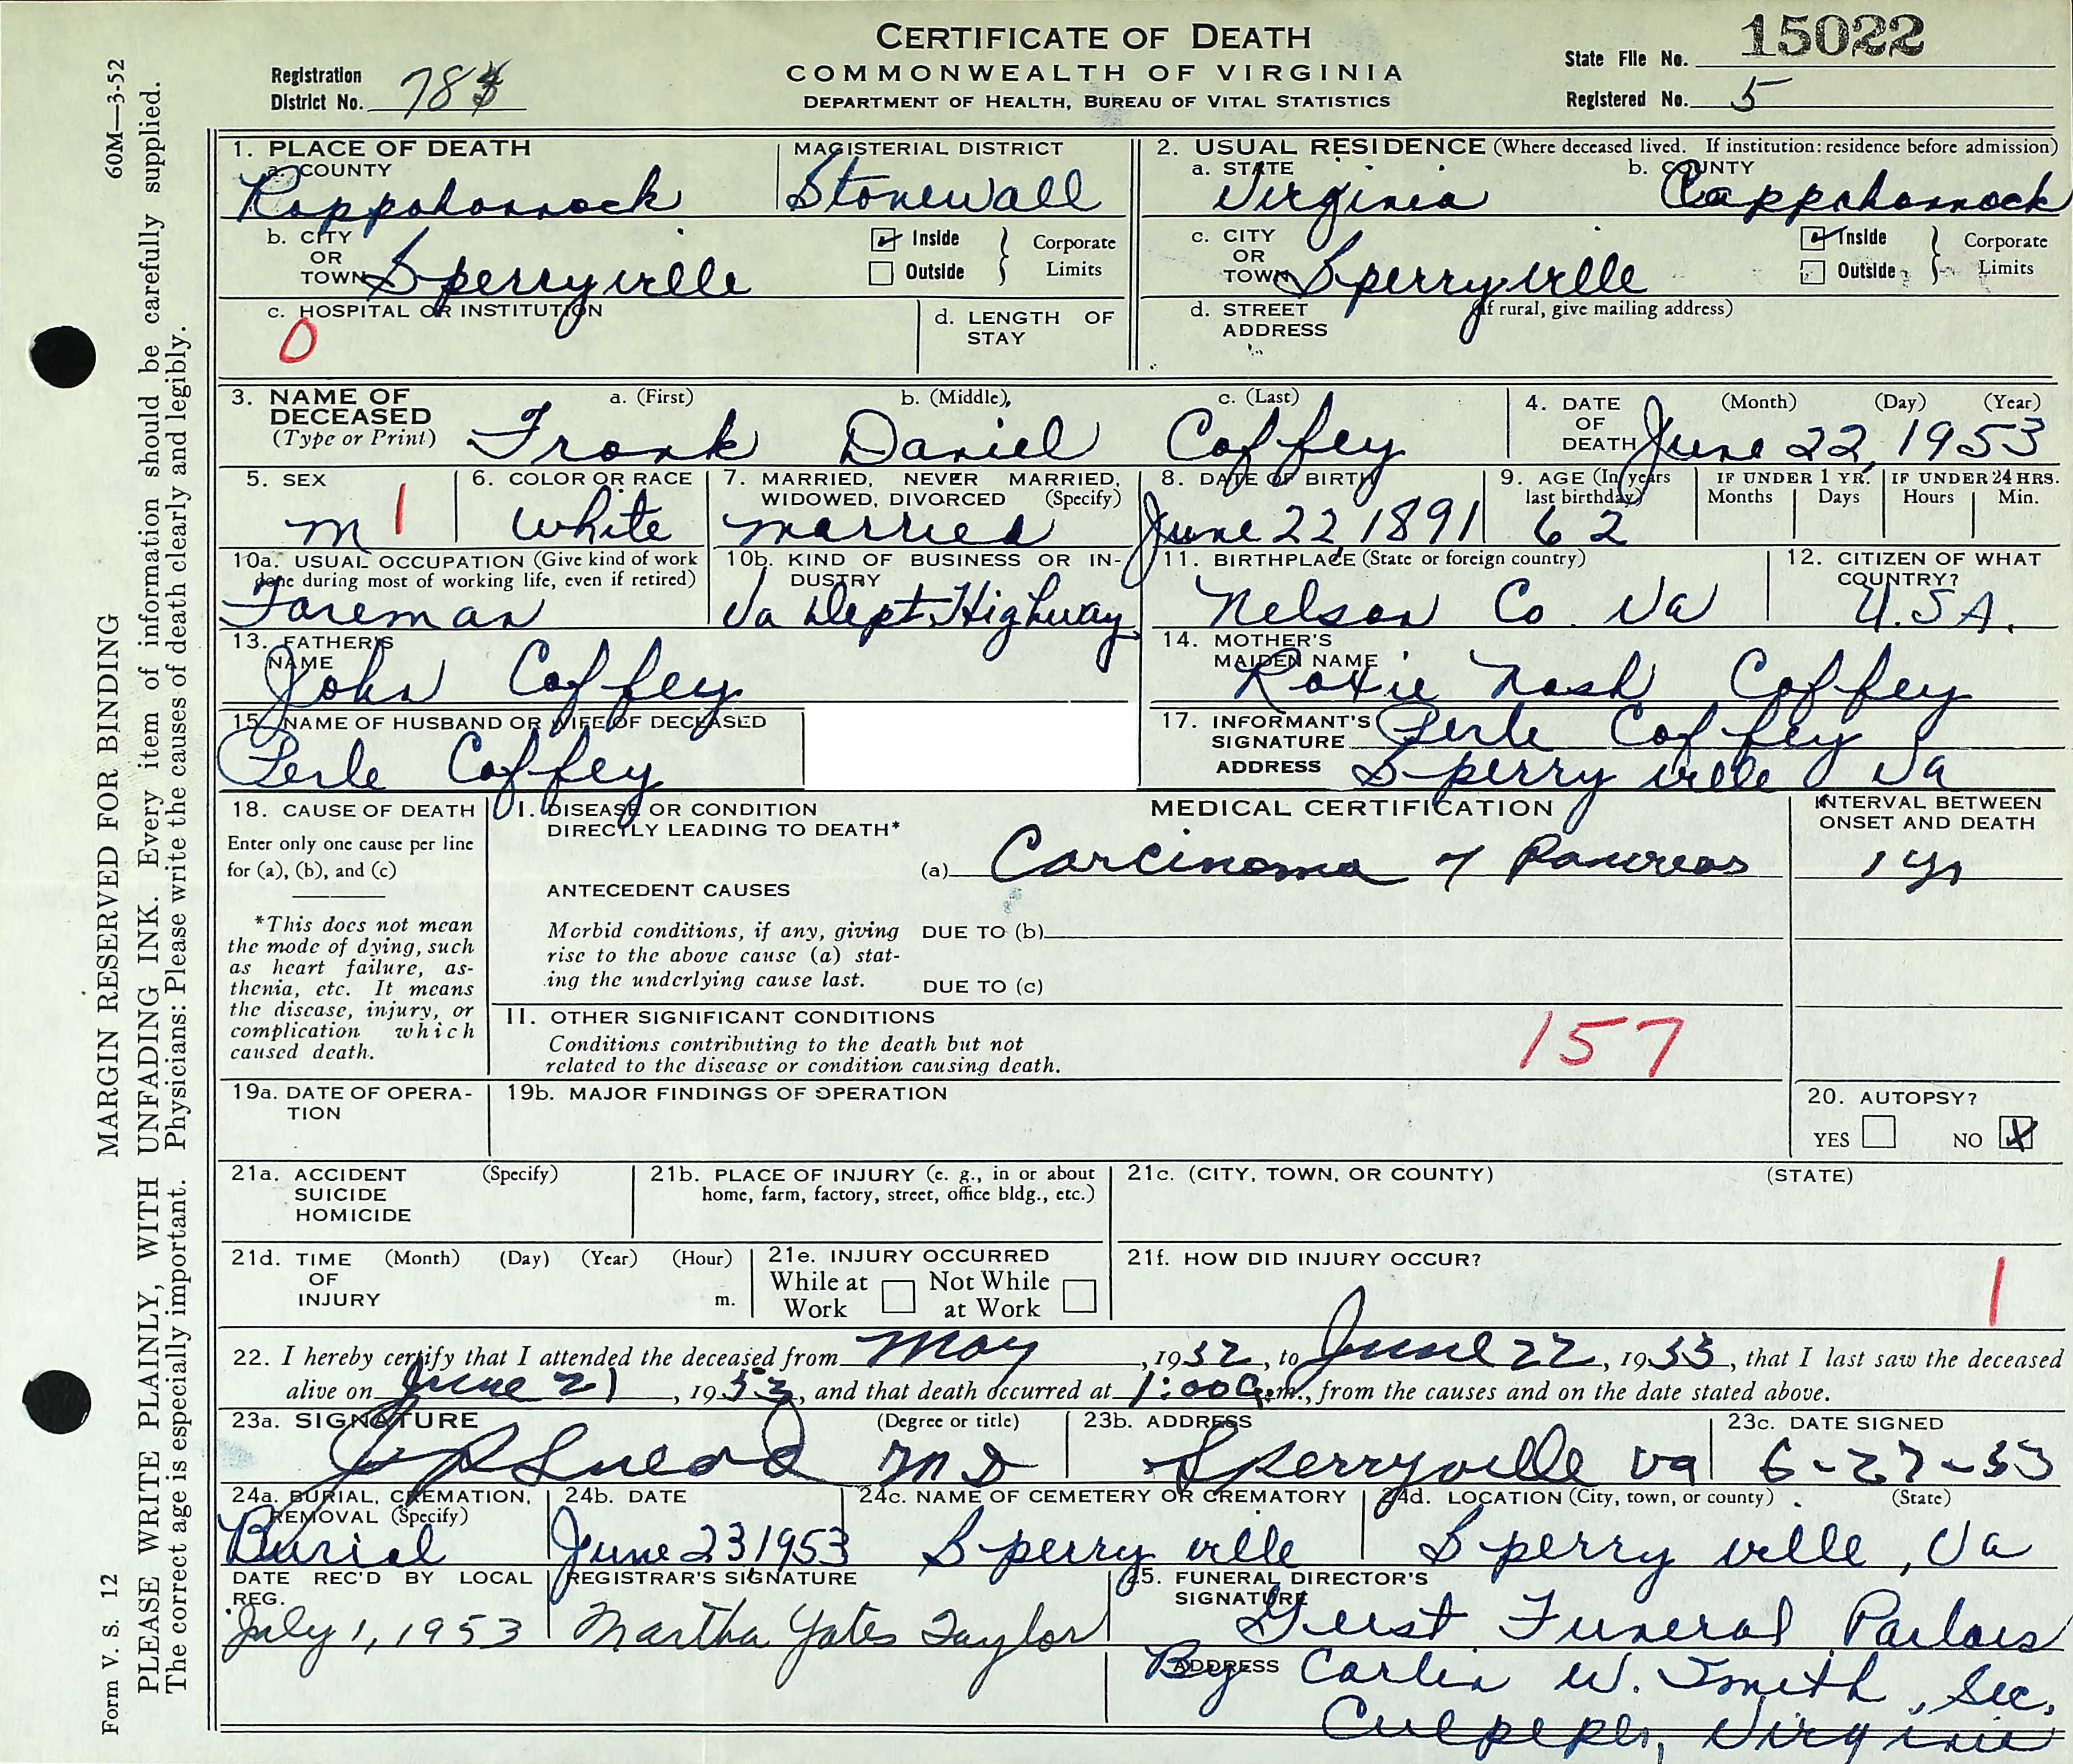 CERTIFICATE OF DEATH
COMMONWEALTH OF VIRGINIA
DEPARTMENT OF HEALTH, BUREAU OF VITAL STATISTICS
Registration District No. 78
State File No. 15022
Registered No. 5
60M—3-52
MARGIN RESERVED FOR BINDING
PLEASE WRITE PLAINLY, WITH UNFADING INK. Every item of information should be carefully supplied.
The correct age is especially important. Physicians: Please write the causes of death clearly and legibly.
Form V. S. 12
1. PLACE OF DEATH
a. COUNTY
Rappahannock
MAGISTERIAL DISTRICT
Stonewall
2. USUAL RESIDENCE (Where deceased lived. If institution: residence before admission)
a. STATE
Virginia
b. COUNTY
Rappahannock
b. CITY OR TOWN Sperryville
Inside
Outside
Corporate Limits
c. CITY OR TOWN Sperryville
Inside
Outside
Corporate Limits
c. HOSPITAL OR INSTITUTION
0
d. LENGTH OF STAY
d. STREET ADDRESS
(If rural, give mailing address)
3. NAME OF DECEASED
(Type or Print)
a. (First)
b. (Middle)
c. (Last)
Frank Daniel Coffey
4. DATE OF DEATH
(Month) (Day) (Year)
June 22, 1953
5. SEX
M 1
6. COLOR OR RACE
White
7. MARRIED, NEVER MARRIED, WIDOWED, DIVORCED (Specify)
married
8. DATE OF BIRTH
June 22 1891
9. AGE (In years last birthday)
62
IF UNDER 1 YR.
Months Days
IF UNDER 24 HRS.
Hours Min.
10a. USUAL OCCUPATION (Give kind of work done during most of working life, even if retired)
Foreman
10b. KIND OF BUSINESS OR INDUSTRY
Va Dept. Highway
11. BIRTHPLACE (State or foreign country)
Nelson Co. Va
12. CITIZEN OF WHAT COUNTRY?
U.S.A.
13. FATHER'S NAME
John Coffey
14. MOTHER'S MAIDEN NAME
Roxie Nash Coffey
15. NAME OF HUSBAND OR WIFE OF DECEASED
Perle Coffey
17. INFORMANT'S SIGNATURE Perle Coffey
ADDRESS Sperryville Va
18. CAUSE OF DEATH
Enter only one cause per line for (a), (b), and (c)
*This does not mean the mode of dying, such as heart failure, asthenia, etc. It means the disease, injury, or complication which caused death.
MEDICAL CERTIFICATION
INTERVAL BETWEEN ONSET AND DEATH
I. DISEASE OR CONDITION DIRECTLY LEADING TO DEATH*
(a) Carcinoma of Pancreas
1 yr
ANTECEDENT CAUSES
Morbid conditions, if any, giving rise to the above cause (a) stating the underlying cause last.
DUE TO (b)
DUE TO (c)
II. OTHER SIGNIFICANT CONDITIONS
Conditions contributing to the death but not related to the disease or condition causing death.
157
19a. DATE OF OPERATION
19b. MAJOR FINDINGS OF OPERATION
20. AUTOPSY?
YES NO X
21a. ACCIDENT SUICIDE HOMICIDE
(Specify)
21b. PLACE OF INJURY (e. g., in or about home, farm, factory, street, office bldg., etc.)
21c. (CITY, TOWN, OR COUNTY)
(STATE)
21d. TIME OF INJURY
(Month) (Day) (Year) (Hour)
m.
21e. INJURY OCCURRED
While at Work
Not While at Work
21f. HOW DID INJURY OCCUR?
1
22. I hereby certify that I attended the deceased from May, 1952, to June 22, 1953, that I last saw the deceased
alive on June 21, 1953, and that death occurred at 1:00 a.m., from the causes and on the date stated above.
23a. SIGNATURE
(Degree or title)
M D
23b. ADDRESS
Sperryville Va
23c. DATE SIGNED
6-27-53
24a. BURIAL, CREMATION, REMOVAL (Specify)
Burial
24b. DATE
June 23 1953
24c. NAME OF CEMETERY OR CREMATORY
Sperryville
24d. LOCATION (City, town, or county)
(State)
Sperryville, Va
DATE REC'D BY LOCAL REG.
July 1, 1953
REGISTRAR'S SIGNATURE
Martha Yates Taylor
25. FUNERAL DIRECTOR'S SIGNATURE
Funeral Parlors
ADDRESS
By W. Smith, Sec.
Culpeper, Virginia